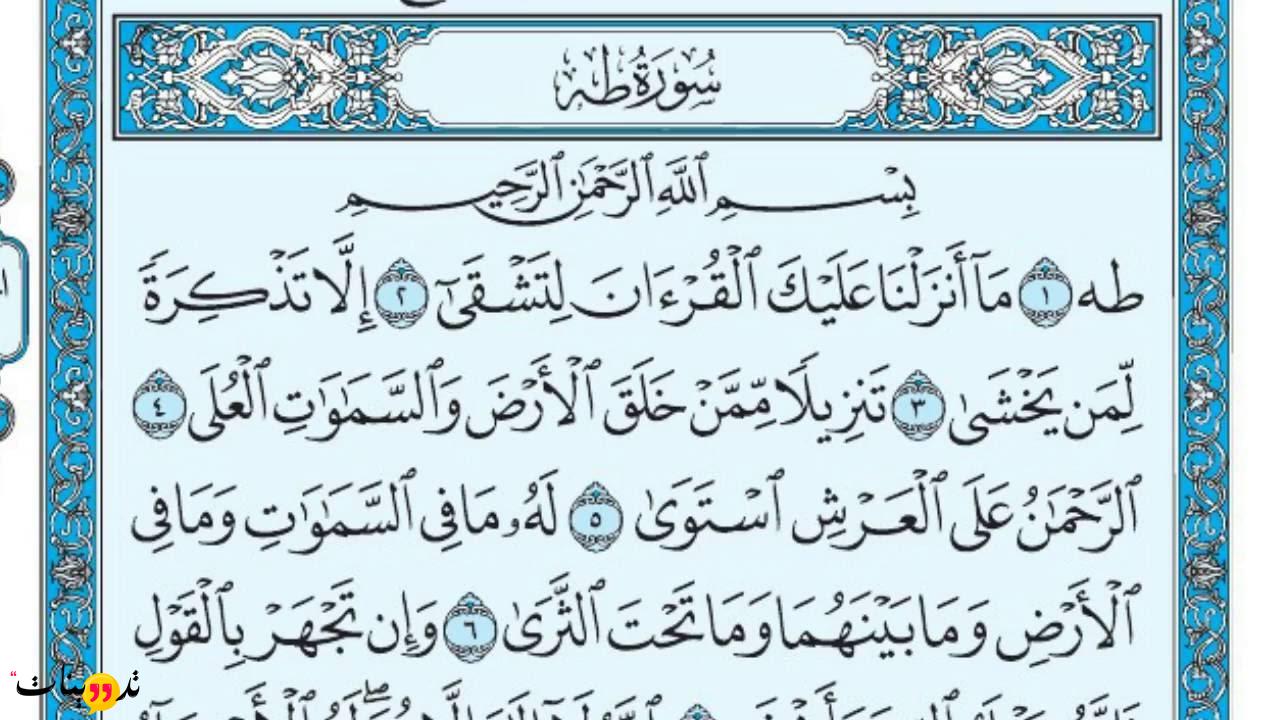 سُورَةُ طه
بِسْمِ ٱللَّهِ ٱلرَّحْمَٰنِ ٱلرَّحِيمِ
طه ١ مَآ أَنزَلْنَا عَلَيْكَ ٱلْقُرْءَانَ لِتَشْقَىٰٓ ٢ إِلَّا تَذْكِرَةً
لِّمَن يَخْشَىٰ ٣ تَنزِيلًا مِّمَّنْ خَلَقَ ٱلْأَرْضَ وَٱلسَّمَٰوَٰتِ ٱلْعُلَى ٤
ٱلرَّحْمَٰنُ عَلَى ٱلْعَرْشِ ٱسْتَوَىٰ ٥ لَهُۥ مَا فِى ٱلسَّمَٰوَٰتِ وَمَا فِى
ٱلْأَرْضِ وَمَا بَيْنَهُمَا وَمَا تَحْتَ ٱلثَّرَىٰ ٦ وَإِن تَجْهَرْ بِٱلْقَوْلِ
تدوينات